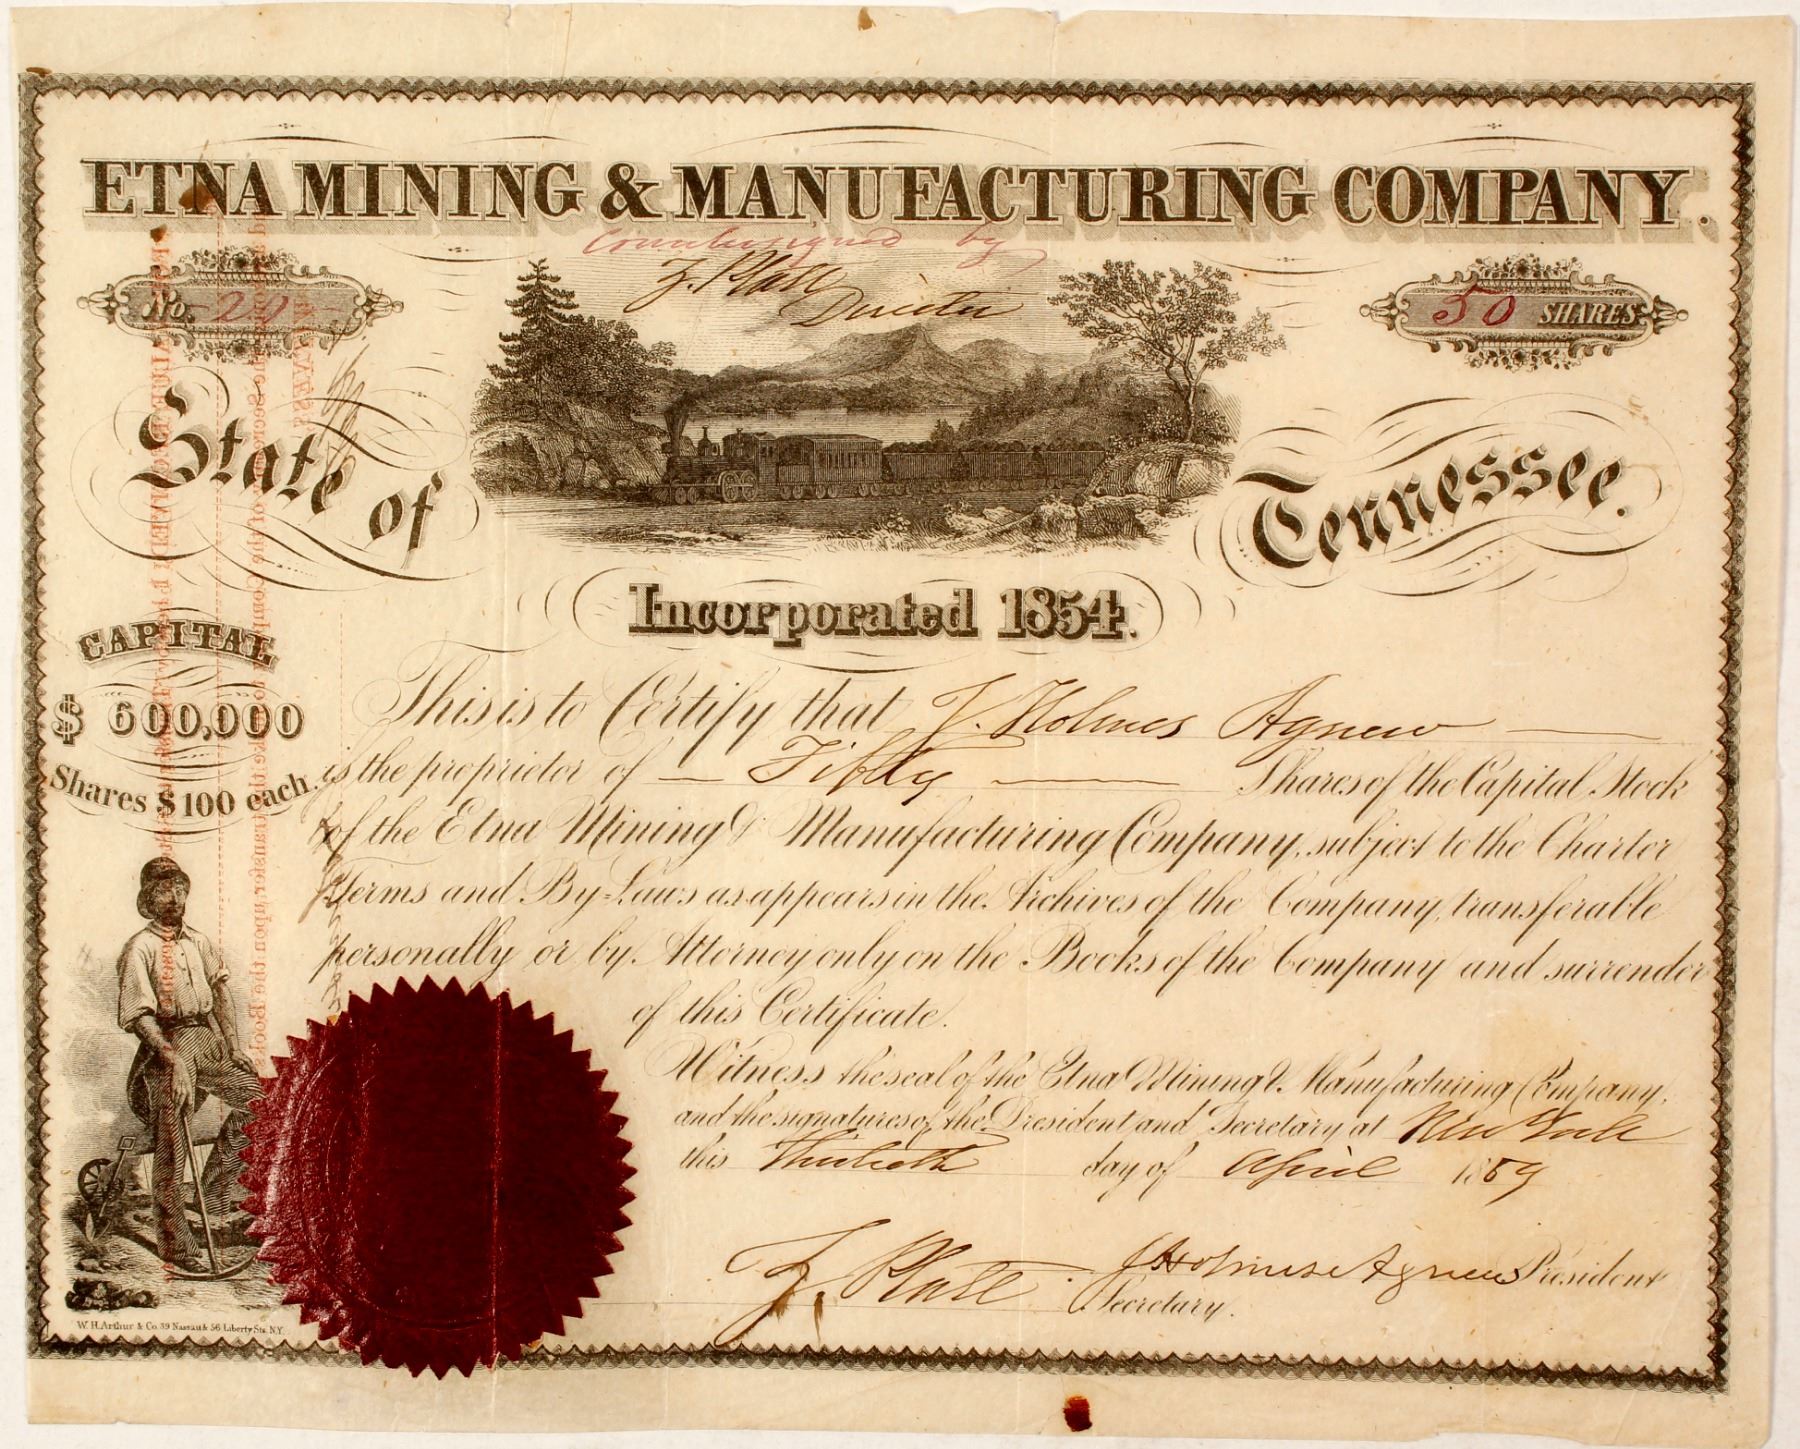 ETNA MINING & MANUFACTURING COMPANY.
Countersigned by
Z. Plass
Director
No. 20
50 SHARES
State of Tennessee.
Incorporated 1854.
CAPITAL
$ 600,000
Shares $100 each.
This is to Certify that J. Holmes Agnew
is the proprietor of Fifty Shares of the Capital Stock
of the Etna Mining & Manufacturing Company, subject to the Charter
Terms and By-Laws as appears in the Archives of the Company, transferable
personally or by Attorney only on the Books of the Company and surrender
of this Certificate.
Witness the seal of the Etna Mining & Manufacturing Company,
and the signatures of the President and Secretary at New York
this Thirtieth day of April 1859
J Holmes Agnew President
Z. Plass Secretary.
W. H. Arthur & Co. 39 Nassau & 56 Liberty Sts. N.Y.